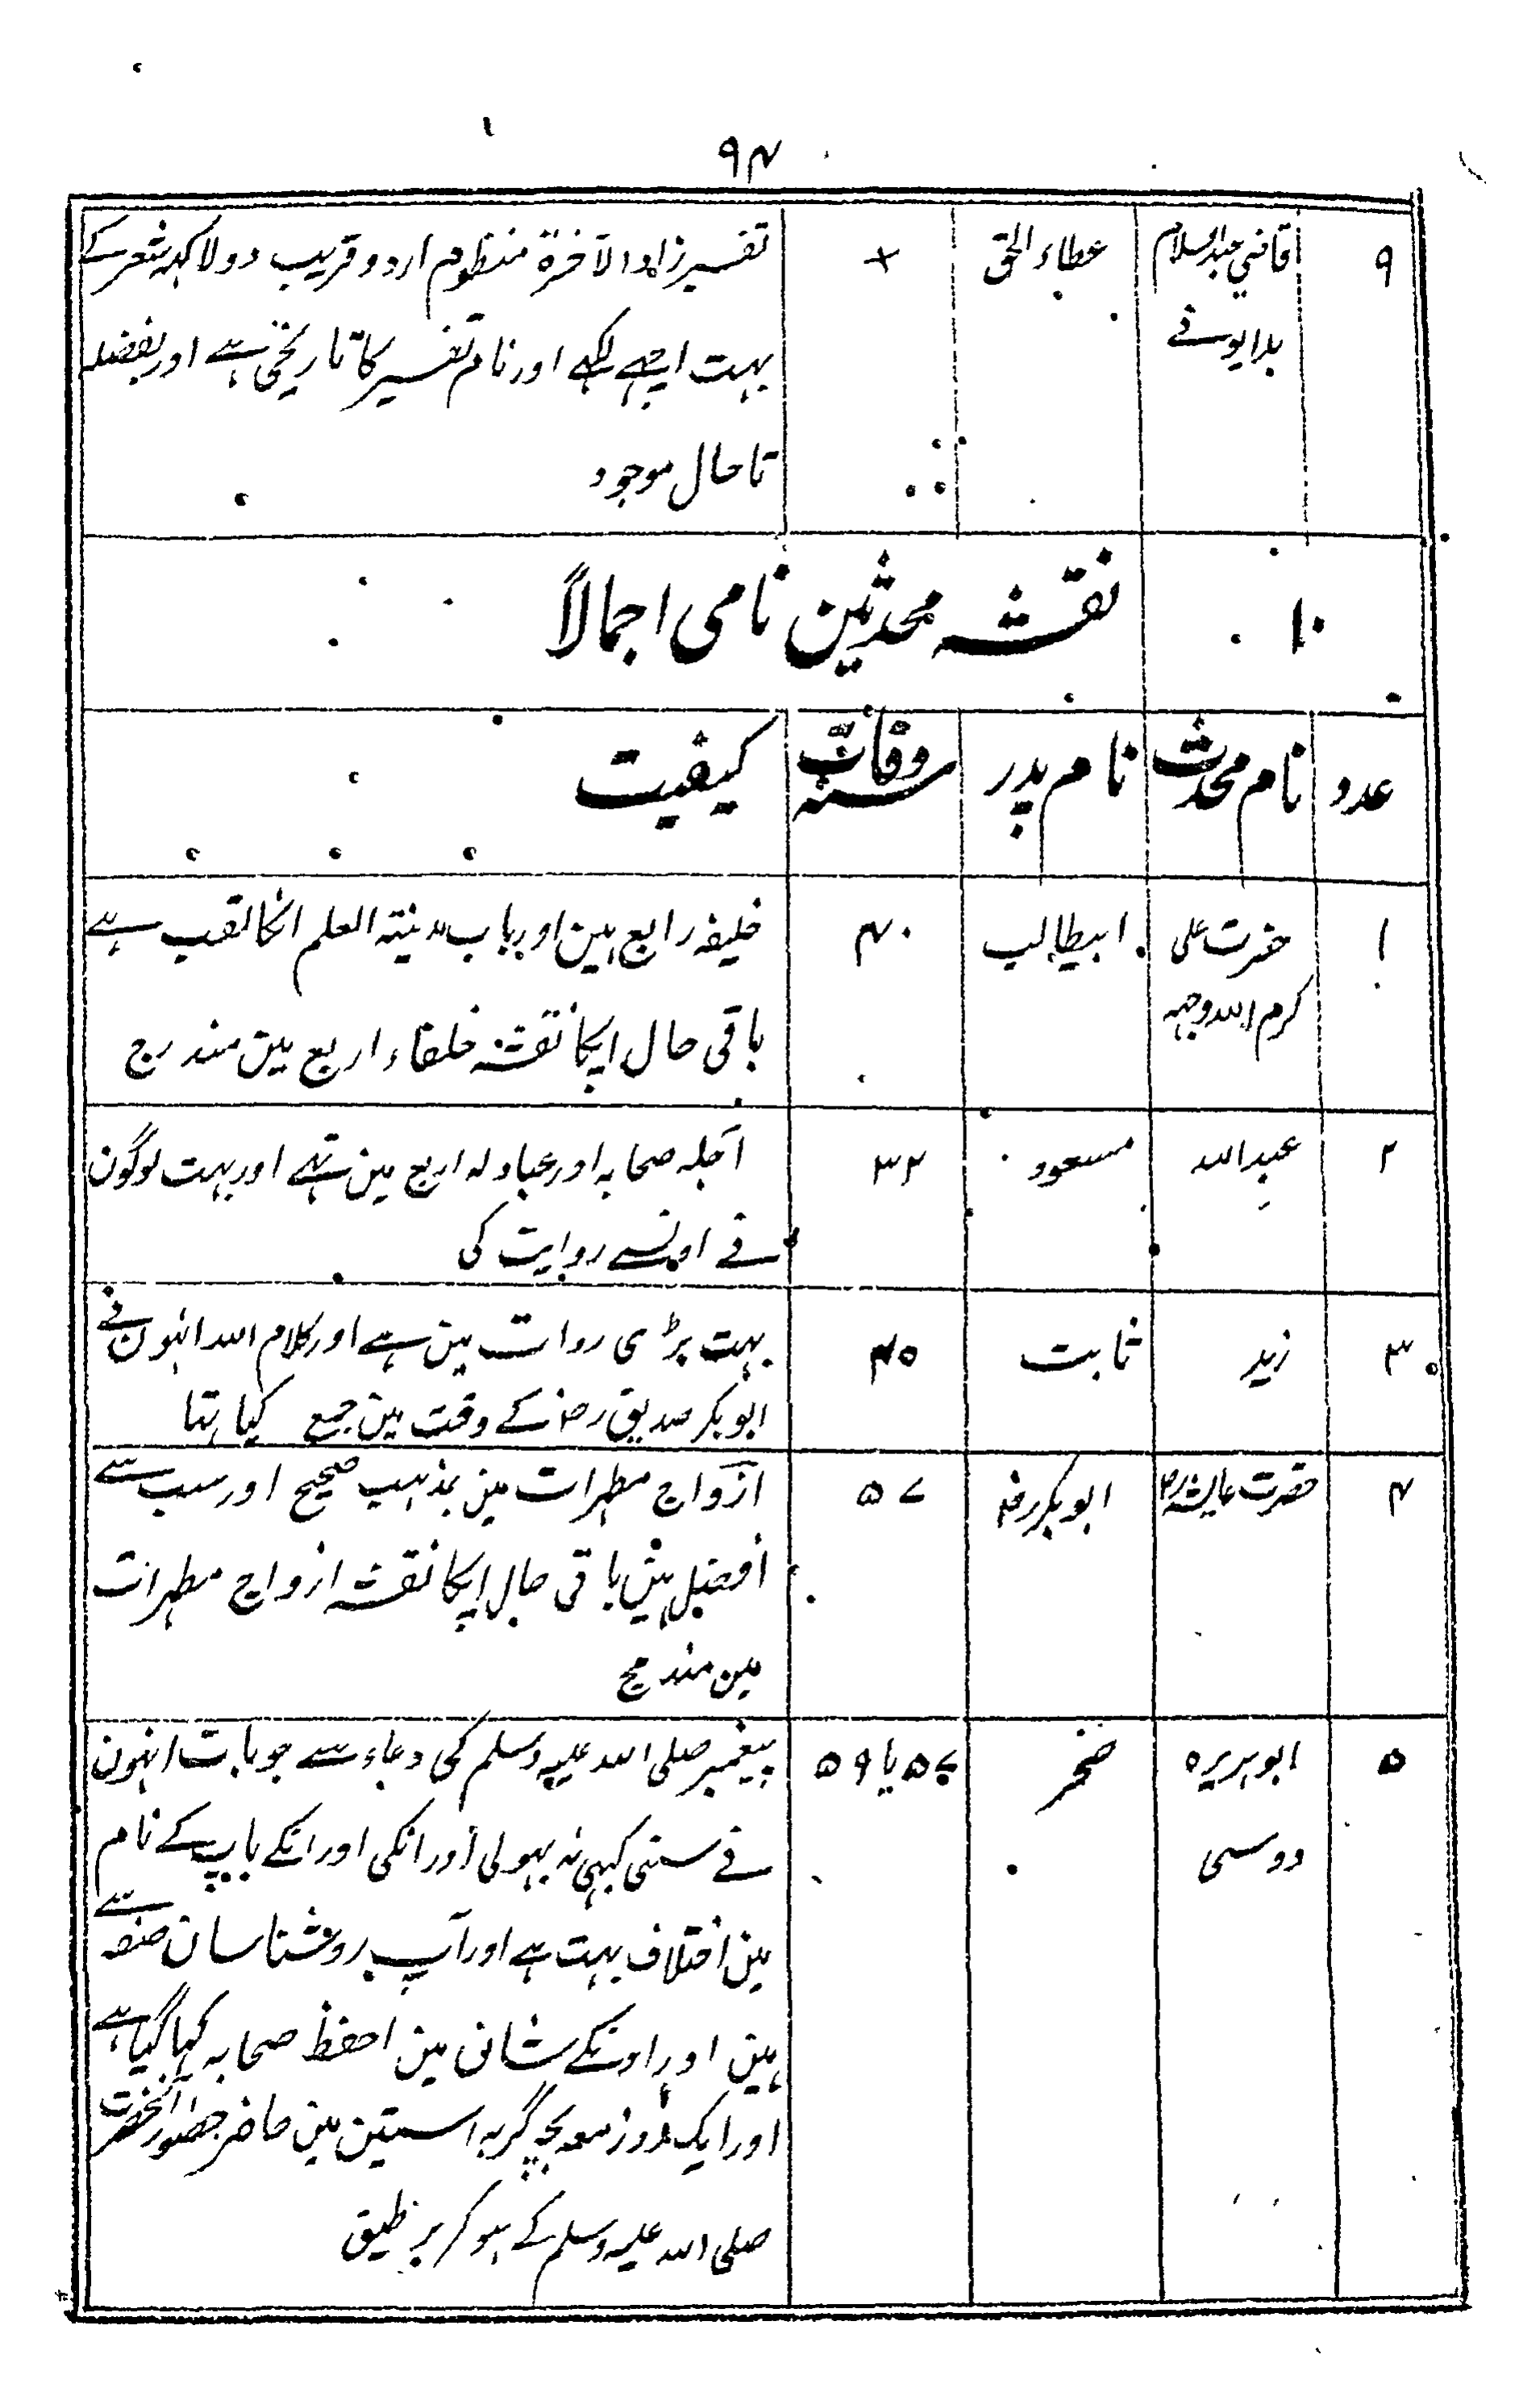 ۹۴
۹ قاضی عبدالسلام عطاء الحق × تفسیر زاد الآخرۃ منظوم اردو قریب دو لاکہہ شعر کے
بدایونے بہت اچہے لکہے اور نام تفسیر کا تاریخی ہے اور بفضلہ
تا حال موجود
۱۰ نقشہ محدثین نامی اجمالاً
عدد نام محدث نام پدر سنہ وفات کیفیت
۱ حضرت علی ابیطالب ۴۰ خلیفہ رابع ہین اور باب مدینتہ العلم انکا لقب ہے
کرم اللہ وجہہ باقی حال آپکا نقشہ خلفاء اربع مین مندرج
۲ عبداللہ مسعود ۳۲ اجلہ صحابہ اور عبادلہ اربع مین تہے اور بہت لوگون
نے اونسے روایت کی
۳ زید ثابت ۴۵ بہت بڑی روات مین ہے اور کلام اللہ انہون نے
ابوبکر صدیق رض کے وقت مین جمع کیا تہا
۴ حضرت عایشہ رض ابوبکر رض ۵۷ ازواج مطہرات مین بمذہب صحیح اور سب سے
افضل ہین باقی حال آپکا نقشہ ازواج مطہرات
مین مندرج
۵ ابوہریرہ صخر ۵۷ یا ۵۹ پیغمبر صلی اللہ علیہ وسلم کی دعاء سے جو بات انہون
دوسی نے سنی کبہی نہ بہولی اور انکی اور انکے باپ کے نام
مین اختلاف بہت ہے اور آپ روشناسان صفہ سے
ہین اور اونکے شان مین احفظ صحابہ کہا گیا ہے
اور ایک روز معہ بچہ گربہ استین مین حاضر حضور آنحضرت
صلی اللہ علیہ وسلم کے ہو کر بر طبق